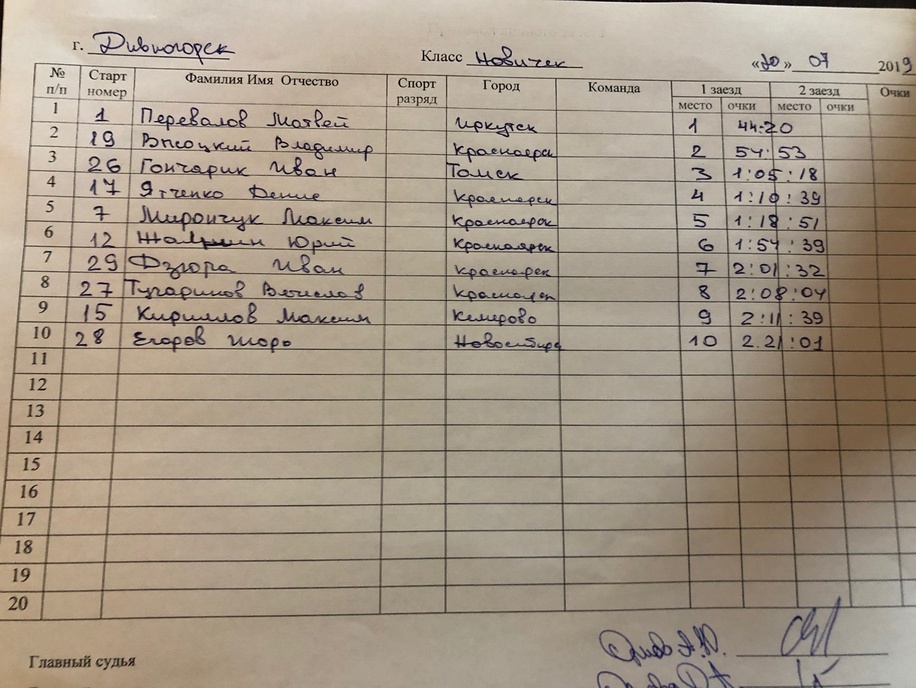 г. Дивногорск Класс Новичек «20» 07 2019
№ п/п Старт номер Фамилия Имя Отчество Спорт разряд Город Команда 1 заезд 2 заезд Очки
место очки место очки
1 1 Перевалов Матвей Иркутск 1 44:20
2 19 Высоцкий Владимир Красноярск 2 54:53
3 26 Гончарик Иван Томск 3 1:05:18
4 17 Ятченко Денис Красноярск 4 1:10:39
5 7 Мирончук Максим Красноярск 5 1:18:51
6 12 Юрий Красноярск 6 1:54:39
7 29 Дзюра Иван Красноярск 7 2:01:32
8 27 Тугаринов Вячеслав Красноярск 8 2:08:04
9 15 Кириллов Максим Кемерово 9 2:11:39
10 28 Егоров Жора Новосибирск 10 2.21:01
11
12
13
14
15
16
17
18
19
20
Главный судья